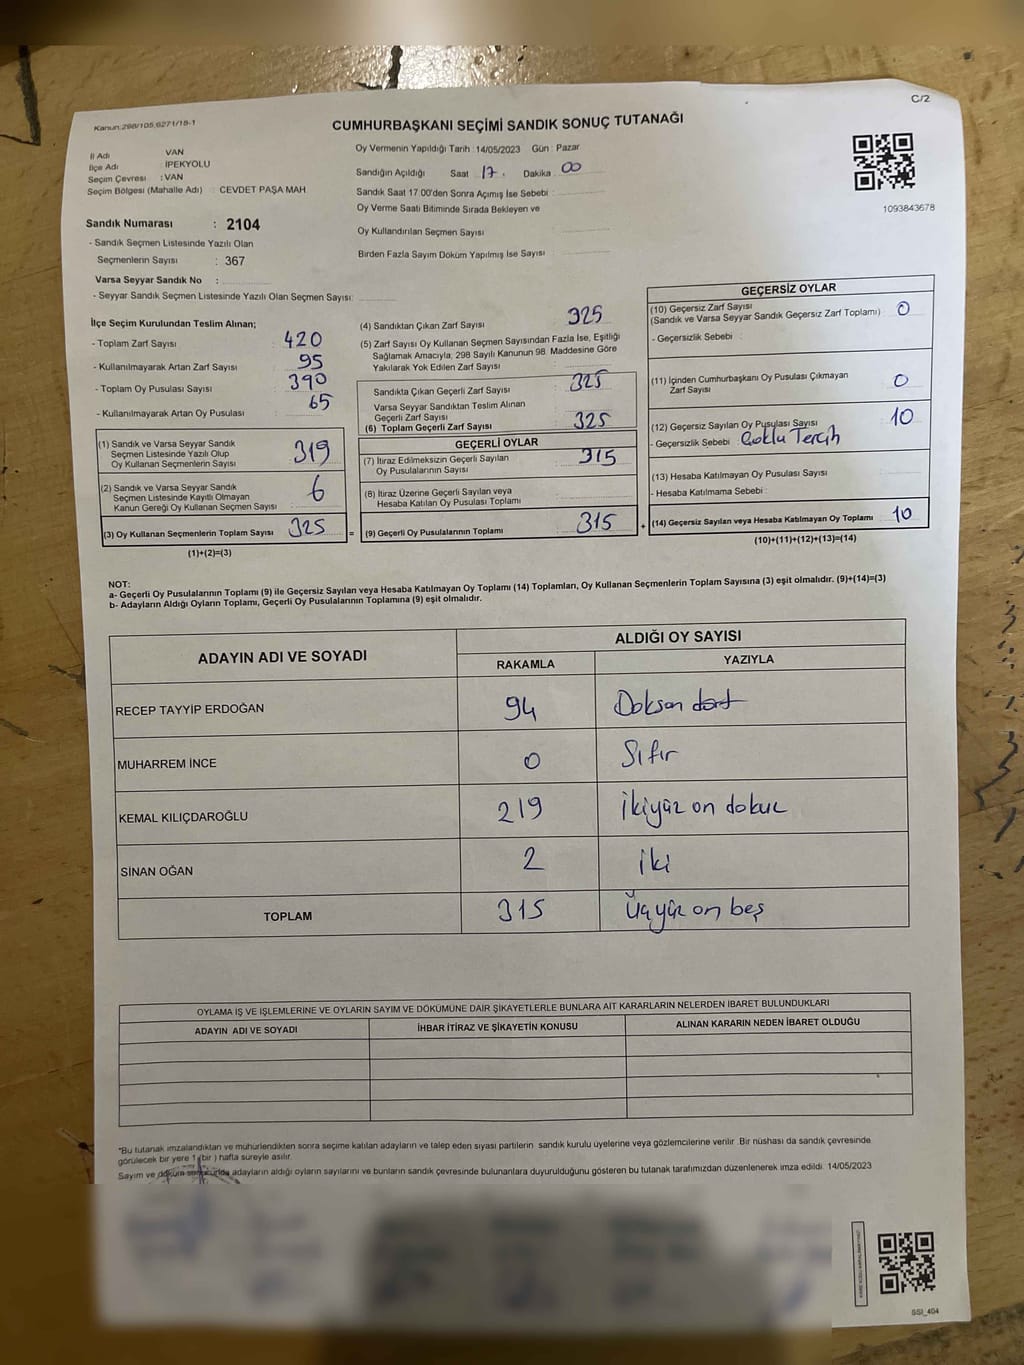 C/2
Kanun:298/105,6271/18-1
CUMHURBAŞKANI SEÇİMİ SANDIK SONUÇ TUTANAĞI
İl Adı VAN
İlçe Adı : İPEKYOLU
Seçim Çevresi : VAN
Seçim Bölgesi (Mahalle Adı) : CEVDET PAŞA MAH.
Sandık Numarası : 2104
- Sandık Seçmen Listesinde Yazılı Olan
Seçmenlerin Sayısı : 367
Varsa Seyyar Sandık No :
- Seyyar Sandık Seçmen Listesinde Yazılı Olan Seçmen Sayısı:
Oy Vermenin Yapıldığı Tarih : 14/05/2023 Gün : Pazar
Sandığın Açıldığı Saat 17. Dakika 00
Sandık Saat 17.00'den Sonra Açımış İse Sebebi :
Oy Verme Saati Bitiminde Sırada Bekleyen ve
Oy Kullandırılan Seçmen Sayısı
Birden Fazla Sayım Döküm Yapılmış İse Sayısı
1093843678
İlçe Seçim Kurulundan Teslim Alınan;
- Toplam Zarf Sayısı : 420
- Kullanılmayarak Artan Zarf Sayısı : 95
- Toplam Oy Pusulası Sayısı : 390
- Kullanılmayarak Artan Oy Pusulası : 65
(1) Sandık ve Varsa Seyyar Sandık
Seçmen Listesinde Yazılı Olup
Oy Kullanan Seçmenlerin Sayısı 319
(2) Sandık ve Varsa Seyyar Sandık
Seçmen Listesinde Kayıtlı Olmayan
Kanun Gereği Oy Kullanan Seçmen Sayısı : 6
(3) Oy Kullanan Seçmenlerin Toplam Sayısı 325
(1)+(2)=(3)
(4) Sandıktan Çıkan Zarf Sayısı : 325
(5) Zarf Sayısı Oy Kullanan Seçmen Sayısından Fazla İse, Eşitliği
Sağlamak Amacıyla, 298 Sayılı Kanunun 98. Maddesine Göre
Yakılarak Yok Edilen Zarf Sayısı
Sandıkta Çıkan Geçerli Zarf Sayısı : 325
Varsa Seyyar Sandıktan Teslim Alınan
Geçerli Zarf Sayısı
(6) Toplam Geçerli Zarf Sayısı : 325
GEÇERLİ OYLAR
(7) İtiraz Edilmeksizin Geçerli Sayılan
Oy Pusulalarının Sayısı : 315
(8) İtiraz Üzerine Geçerli Sayılan veya
Hesaba Katılan Oy Pusulası Toplamı
= (9) Geçerli Oy Pusulalarının Toplamı : 315
GEÇERSİZ OYLAR
(10) Geçersiz Zarf Sayısı
(Sandık ve Varsa Seyyar Sandık Geçersiz Zarf Toplamı) : 0
- Geçersizlik Sebebi :
(11) İçinden Cumhurbaşkanı Oy Pusulası Çıkmayan
Zarf Sayısı 0
(12) Geçersiz Sayılan Oy Pusulası Sayısı : 10
- Geçersizlik Sebebi : Çoklu Tercih
(13) Hesaba Katılmayan Oy Pusulası Sayısı
- Hesaba Katılmama Sebebi :
+ (14) Geçersiz Sayılan veya Hesaba Katılmayan Oy Toplamı 10
(10)+(11)+(12)+(13)=(14)
NOT:
a- Geçerli Oy Pusulalarının Toplamı (9) ile Geçersiz Sayılan veya Hesaba Katılmayan Oy Toplamı (14) Toplamları, Oy Kullanan Seçmenlerin Toplam Sayısına (3) eşit olmalıdır. (9)+(14)=(3)
b- Adayların Aldığı Oyların Toplamı, Geçerli Oy Pusulalarının Toplamına (9) eşit olmalıdır.
ADAYIN ADI VE SOYADI ALDIĞI OY SAYISI
RAKAMLA YAZIYLA
RECEP TAYYİP ERDOĞAN 94 Doksan dört
MUHARREM İNCE 0 Sıfır
KEMAL KILIÇDAROĞLU 219 İkiyüz on dokuz
SİNAN OĞAN 2 iki
TOPLAM 315 Üçyüz on beş
OYLAMA İŞ VE İŞLEMLERİNE VE OYLARIN SAYIM VE DÖKÜMÜNE DAİR ŞİKAYETLERLE BUNLARA AİT KARARLARIN NELERDEN İBARET BULUNDUKLARI
ADAYIN ADI VE SOYADI İHBAR İTİRAZ VE ŞİKAYETİN KONUSU ALINAN KARARIN NEDEN İBARET OLDUĞU
*Bu tutanak imzalandıktan ve mühürlendikten sonra seçime katılan adayların ve talep eden siyasi partilerin sandık kurulu üyelerine veya gözlemcilerine verilir. Bir nüshası da sandık çevresinde
görülecek bir yere 1 (bir) hafta süreyle asılır.
Sayım ve döküm sonucunda adayların aldığı oyların sayılarını ve bunların sandık çevresinde bulunanlara duyurulduğunu gösteren bu tutanak tarafımızdan düzenlenerek imza edildi. 14/05/2023
SSI_404